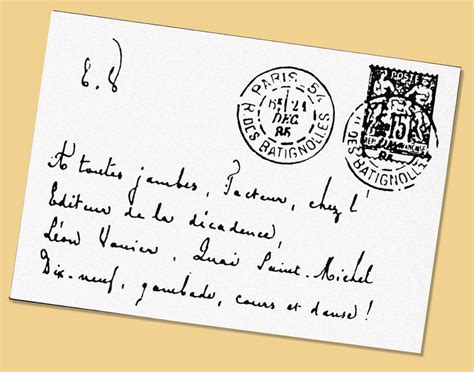 PARIS. 54
21
DEC
85
R. DES BATIGNOLLES
POSTE
15
R. DES BATIGNOLLES
A toutes jambes, Facteur, chez l'
Editeur de la décadence,
Léon Vanier, Quai Saint-Michel
Dix-neuf, gambade, cours et danse !